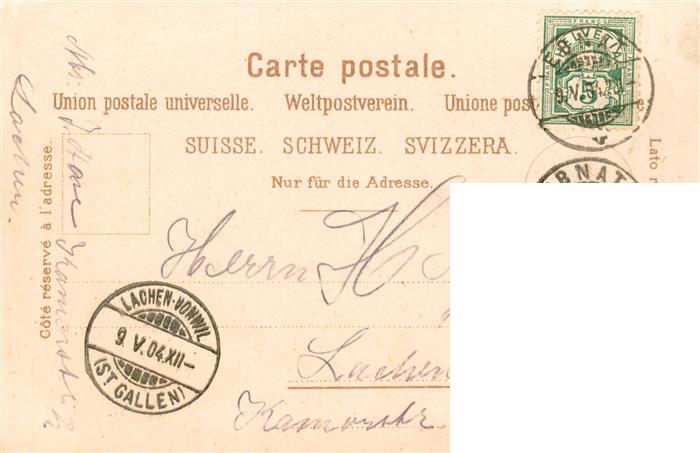 Carte postale.
Union postale universelle. Weltpostverein. Unione pos
SUISSE. SCHWEIZ. SVIZZERA.
Nur für die Adresse.
Côté réservé à l'adresse.
Lato r
FRANCO
HELVETIA
5
9.V.04
BNAT
LACHEN-VONWIL
9.V.04.XII–
(ST GALLEN)
Herrn H
Lachen
Kamorstr.
Lachen.